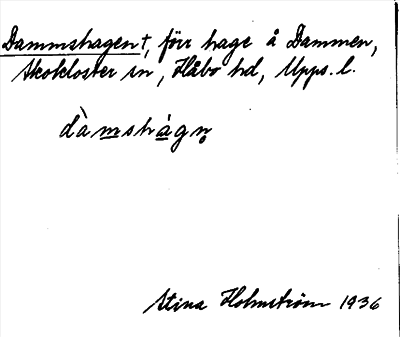 Dammshagen†, förr hage å Dammen,
Skokloster sn, Håbo hd, Upps. l.
dàmshágn̥
Stina Holmström 1936